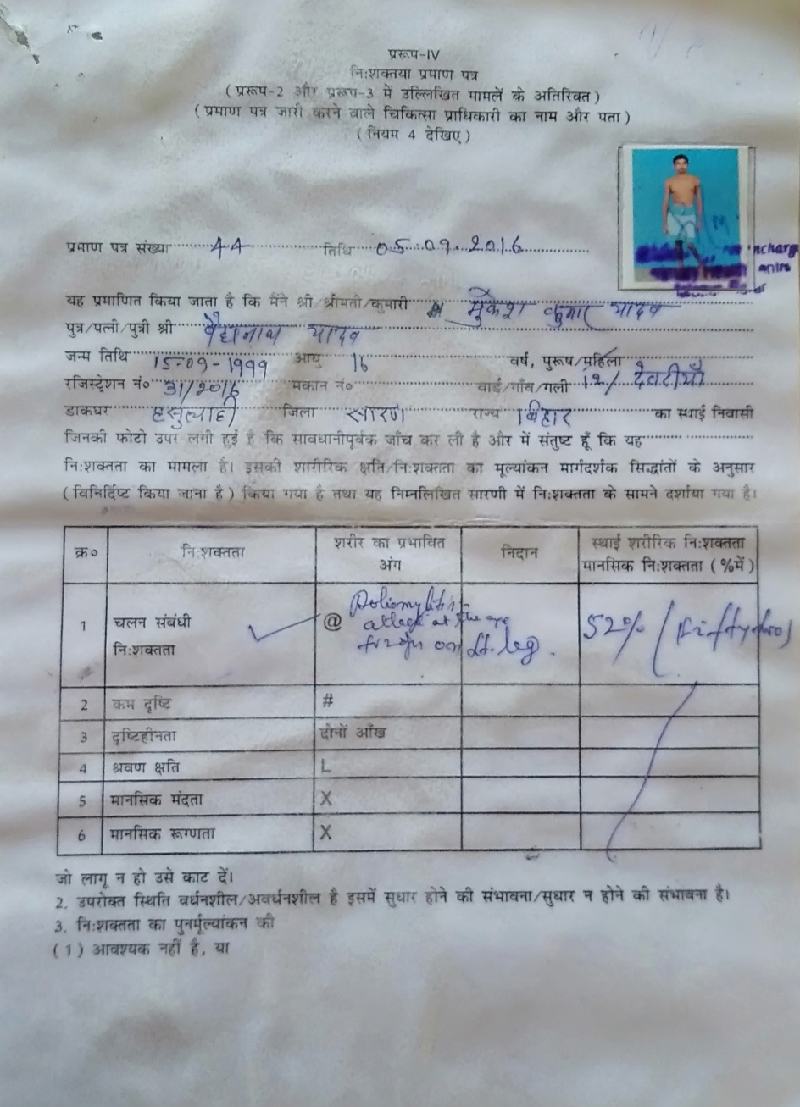 प्ररूप-IV
नि:शक्तया प्रमाण पत्र
( प्ररूप-2 और प्ररूप-3 में उल्लिखित मामलें के अतिरिक्त )
( प्रमाण पत्र जारी करने वाले चिकित्सा प्राधिकारी का नाम और पता )
( नियम 4 देखिए )
प्रमाण पत्र संख्या 44 तिथि 05.09.2016
यह प्रमाणित किया जाता है कि मैंने श्री/श्रीमती/कुमारी मुकेश कुमार यादव
पुत्र/पत्नी/पुत्री श्री वैद्यनाथ यादव
जन्म तिथि 15-09-1999 आयु 16 वर्ष, पुरूष/महिला
रजिस्ट्रेशन नं० 31/2016 मकान नं० वार्ड/गाँव/गली 12/
डाकघर जिला सारण राज्य बिहार का स्थाई निवासी
जिनकी फोटो उपर लगी हुई है कि सावधानीपूर्वक जाँच कर ली है और में संतुष्ट हूँ कि यह
नि:शक्तता का मामला है। इसकी शारीरिक क्षति/नि:शक्तता का मूल्यांकन मार्गदर्शक सिद्धांतों के अनुसार
( विनिर्दिष्ट किया जाना है ) किया गया है तथा यह निम्नलिखित सारणी में नि:शक्तता के सामने दर्शाया गया है।
क्र० नि:शक्तता शरीर का प्रभावित अंग निदान स्थाई शरीरिक नि:शक्तता मानसिक नि:शक्तता (%में )
1 चलन संबंधी नि:शक्तता @ attack at the on Lt. leg. 52% (Fifty two)
2 कम दृष्टि #
3 दृष्टिहीनता दोनों आँख
4 श्रवण क्षति L
5 मानसिक मंदता X
6 मानसिक रूग्णता X
जो लागू न हो उसे काट दें।
2. उपरोक्त स्थिति वर्धनशील/अवर्धनशील है इसमें सुधार होने की संभावना/सुधार न होने की संभावना है।
3. नि:शक्तता का पुनर्मूल्यांकन की
( 1 ) आवश्यक नहीं है, या